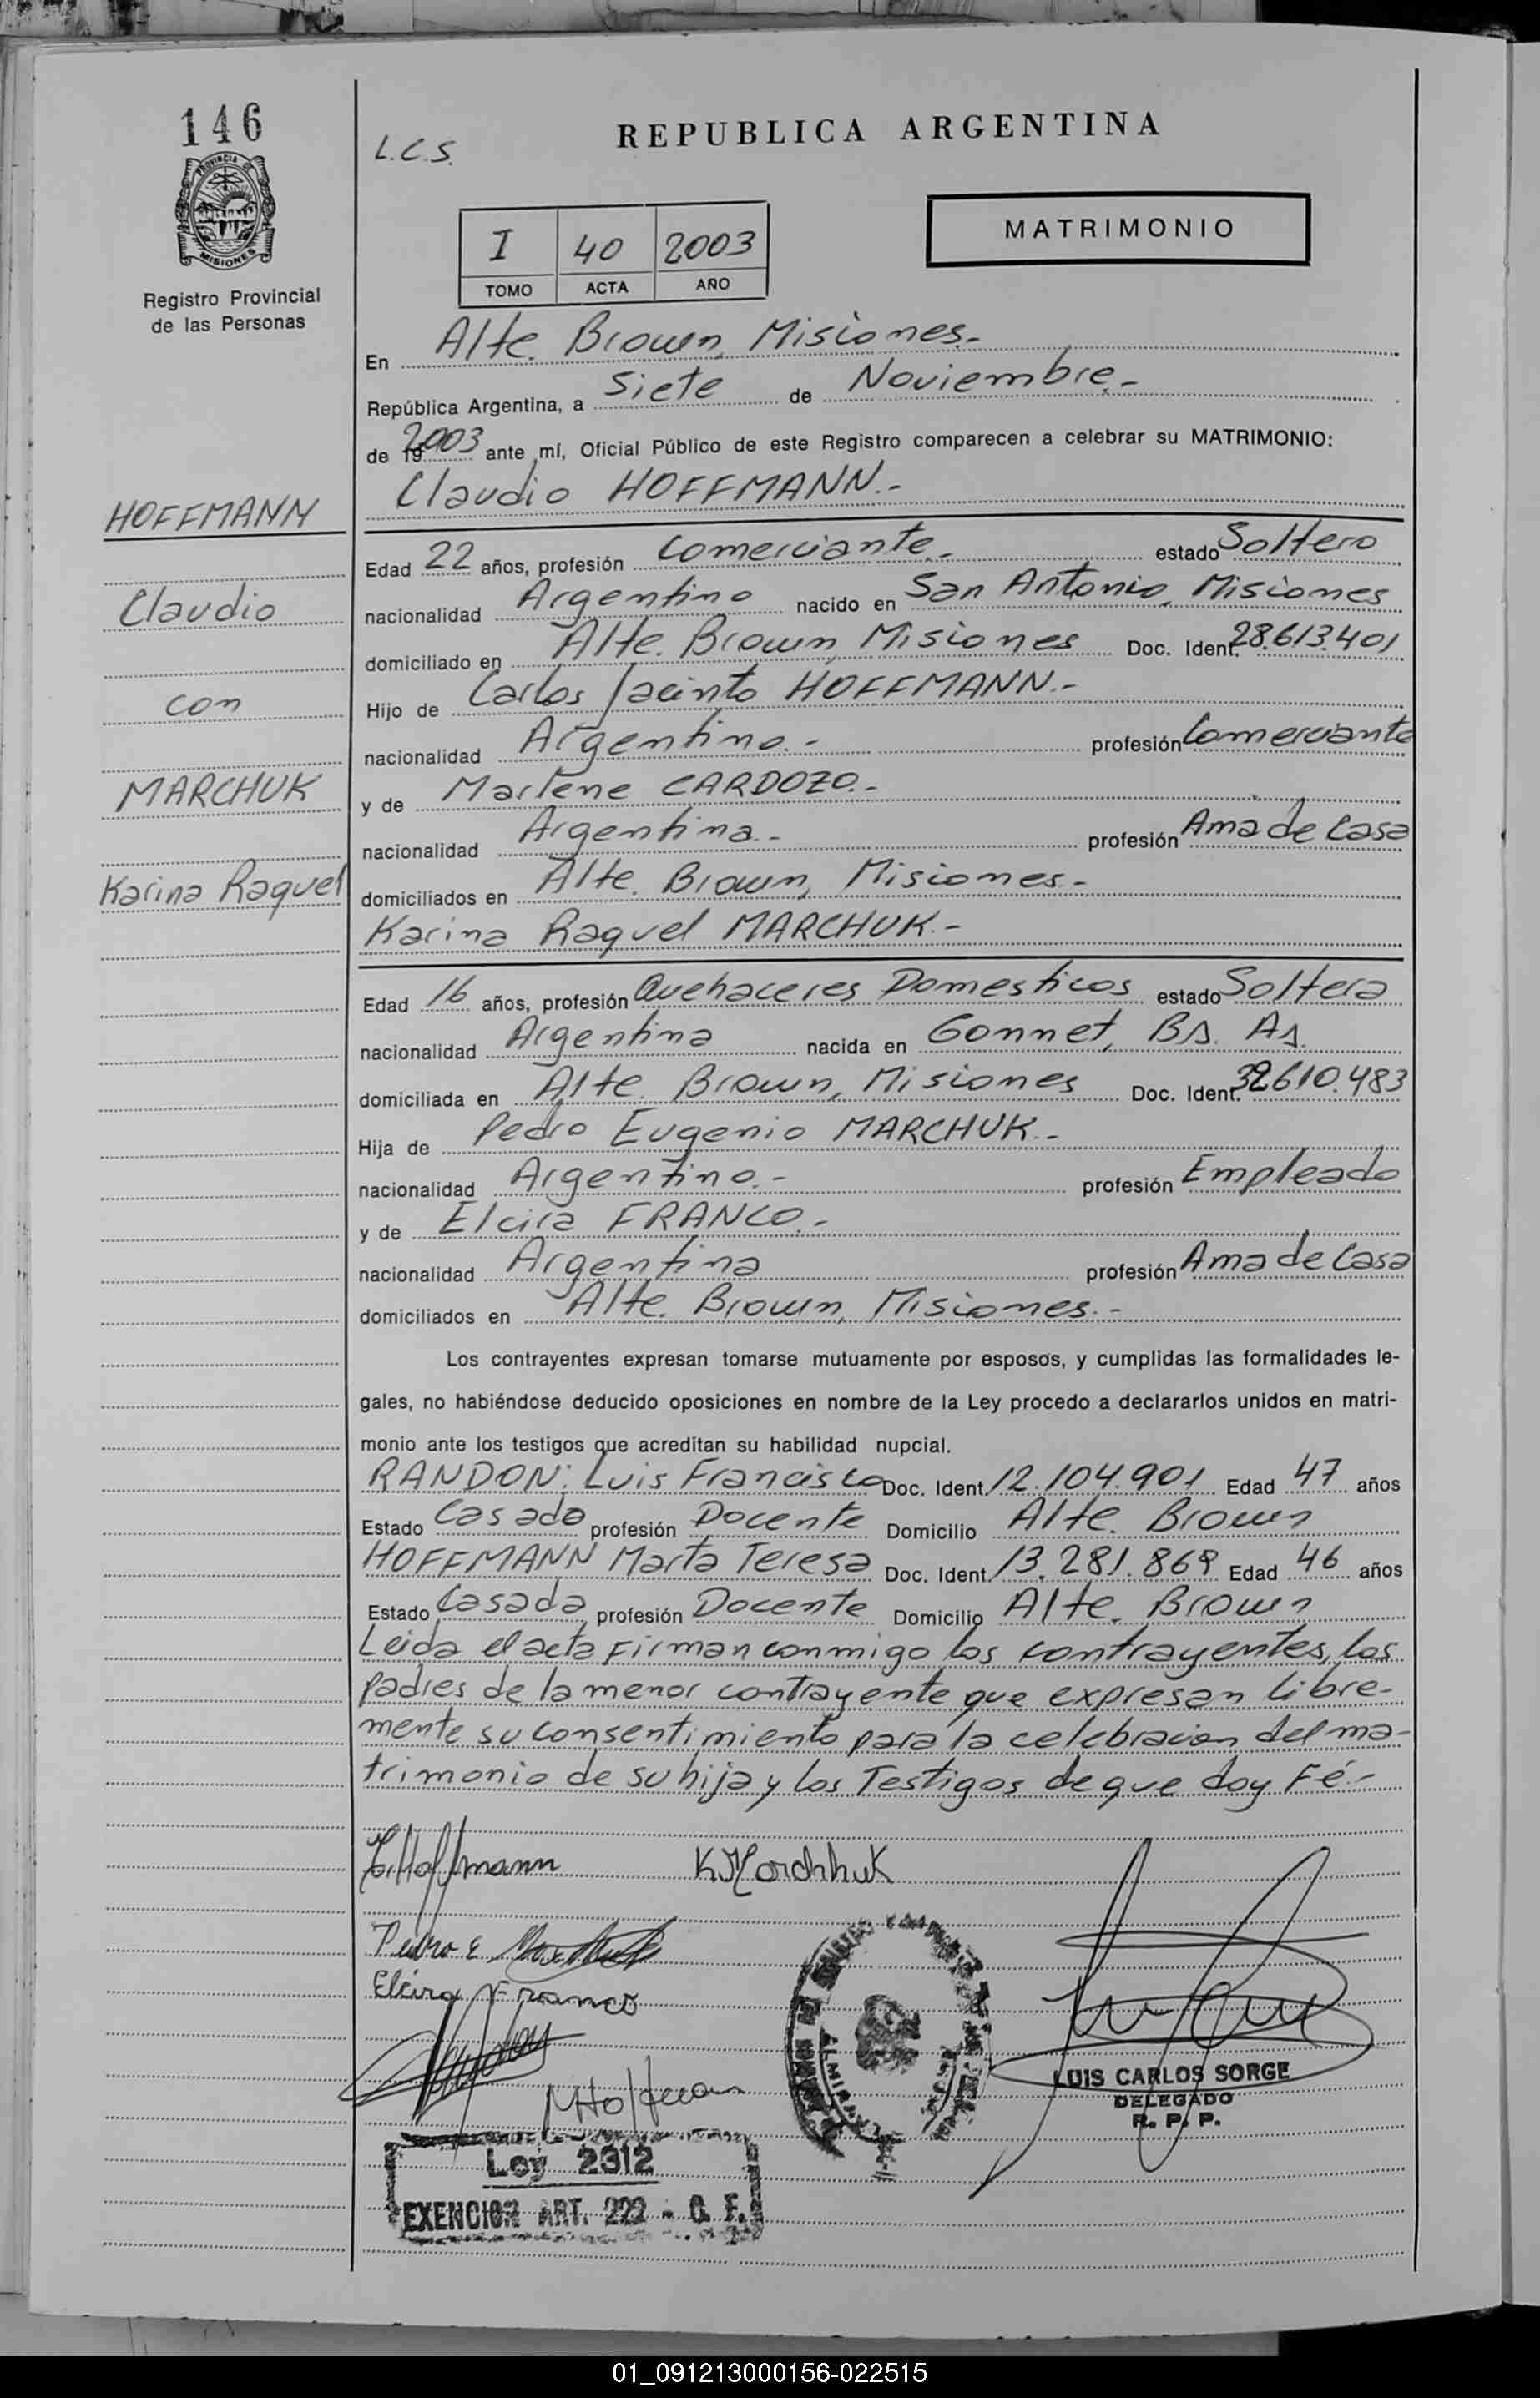 146
PROVINCIA
MISIONES
Registro Provincial
de las Personas
L.C.S.
REPUBLICA ARGENTINA
I 40 2003
TOMO ACTA AÑO
MATRIMONIO
En Alte. Brown, Misiones.-
República Argentina, a Siete de Noviembre.-
de 19 2003 ante mí, Oficial Público de este Registro comparecen a celebrar su MATRIMONIO:
Claudio HOFFMANN.-
HOFFMANN
Claudio
con
MARCHUK
Karina Raquel
Edad 22 años, profesión Comerciante.- estado Soltero
nacionalidad Argentino nacido en San Antonio, Misiones
domiciliado en Alte. Brown, Misiones Doc. Ident. 28.613.401
Hijo de Carlos Jacinto HOFFMANN.-
nacionalidad Argentino.- profesión Comerciante
y de Marlene CARDOZO.-
nacionalidad Argentina.- profesión Ama de Casa
domiciliados en Alte. Brown, Misiones.-
Karina Raquel MARCHUK.-
Edad 16 años, profesión Quehaceres Domesticos estado Soltera
nacionalidad Argentina nacida en Gonnet, Bs. As.
domiciliada en Alte. Brown, Misiones Doc. Ident. 32610.483
Hija de Pedro Eugenio MARCHUK.-
nacionalidad Argentino.- profesión Empleado
y de Elcira FRANCO.-
nacionalidad Argentina profesión Ama de Casa
domiciliados en Alte. Brown, Misiones.-
Los contrayentes expresan tomarse mutuamente por esposos, y cumplidas las formalidades le-
gales, no habiéndose deducido oposiciones en nombre de la Ley procedo a declararlos unidos en matri-
monio ante los testigos que acreditan su habilidad nupcial.
RANDON: Luis Francisco Doc. Ident. 12.104.901 Edad 47 años
Estado Casado profesión Docente Domicilio Alte. Brown
HOFFMANN Marta Teresa Doc. Ident. 13.281.869 Edad 46 años
Estado Casada profesión Docente Domicilio Alte. Brown
Leida el acta Firman conmigo los contrayentes, los
padres de la menor contrayente que expresan libre-
mente su consentimiento para la celebracion del ma-
trimonio de su hija y los Testigos de que doy Fé.-
C. Hoffmann K Marchhuk
Pedro E Marchuk
Elcira Franco
MHoffman
ALMIRANTE
LUIS CARLOS SORGE
DELEGADO
R. P. P.
Ley 2312
EXENCION ART. 222 - C. F.
01_091213000156-022515